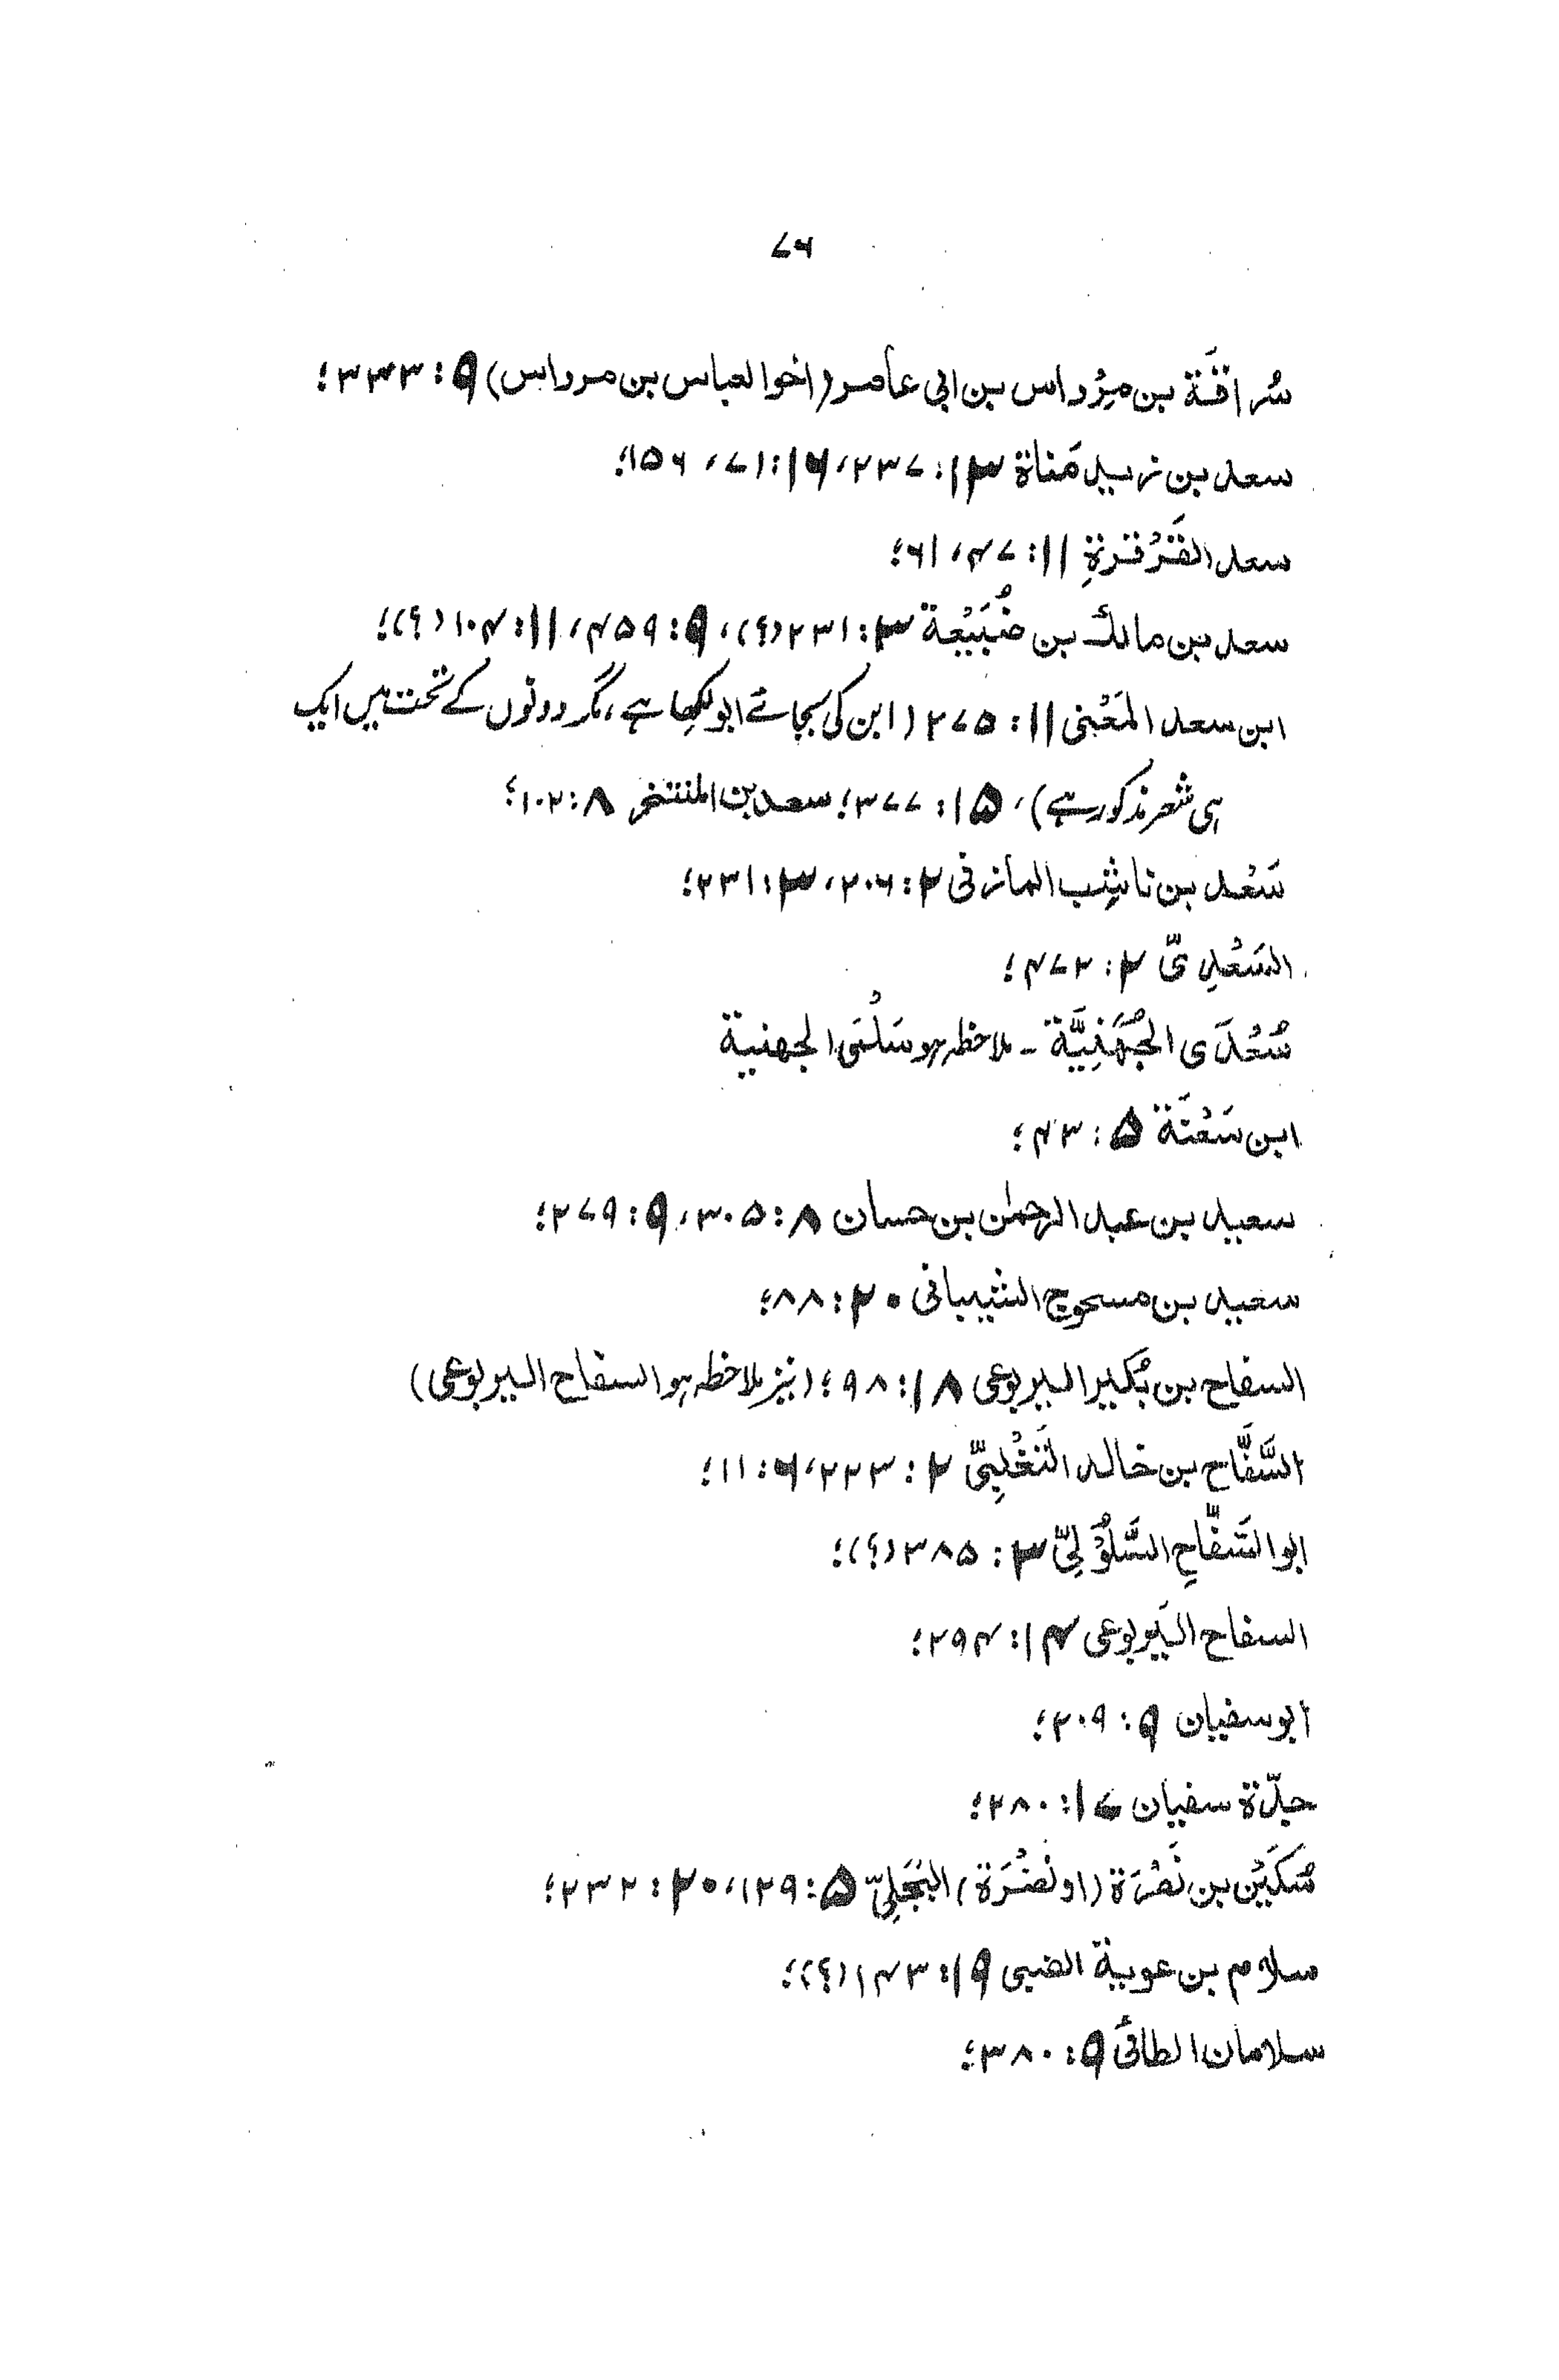 ۷۶
سُراقَة بن مِرْداس بن ابی عامر (اخو العباس بن مرداس) ۹: ۳۳۳؛
سعد بن زید مَناة ۱۳: ۲۳۷، ۱۶: ۷۱، ۱۵۶؛
سعد القَرْقرةِ ۱۱: ۴۷، ۶۱؛
سعد بن مالك بن ضُبَیْعة ۳: ۲۳۱(؟)، ۹: ۴۵۹، ۱۱: ۱۰۴(؟)؛
ابن سعد المَعْنی ۱۱: ۲۷۵ (ابن کی بجائے ابو لکھا ہے، مگر دونوں کے تحت میں ایک
ہی شعر مذکور ہے)، ۱۵: ۳۷۷؛ سعد بن المنتخر ۸: ۱۰۲؛
سَعْد بن ناشِب المازنی ۲: ۲۰۶، ۳: ۲۳۱؛
السَعْدِیّ ۲: ۴۷۲؛
سُعْدَی الجُهَنِیَّة - ملاحظہ ہو سَلْمَی الجهنیة
ابن سَعْنَة ۵: ۴۳؛
سعید بن عبد الرحمٰن بن حسان ۸: ۳۰۵، ۹: ۲۷۹؛
سعید بن مسحوج الشیبانی ۲۰: ۸۸؛
السفاح بن بُکیر الیربوعی ۱۸: ۹۸؛ (نیز ملاحظہ ہو السفاح الیربوعی)
السَّفَّاح بن خالد التَغْلِبِیّ ۲: ۲۲۳، ۶: ۱۱؛
ابو السَفَّاحِ السَّلُوْلِیّ ۳: ۳۸۵(؟)؛
السفاح الیَربوعی ۱۴: ۲۹۴؛
ابو سفیان ۹: ۲۰۹؛
جدّة سفیان ۱۷: ۲۸۰؛
سُکَیْن بن نَضْرَة (او نَضْرَة) البَجَلِیّ ۵: ۱۲۹، ۲۰: ۲۳۲؛
سلام بن عویة الضبی ۱۹: ۱۴۳(؟)؛
سلامان الطائی ۹: ۳۸۰؛